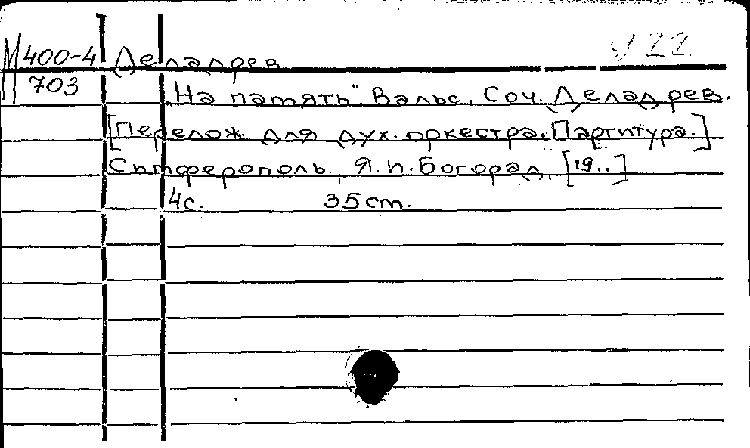 М400-4 Деладрев
703
„На память" Вальс. Соч. Деладрев.
[Перелож. для дух. оркестра. Партитура.]
Симферополь, Я.И. Богорад, [19..]
4с. 35cm.